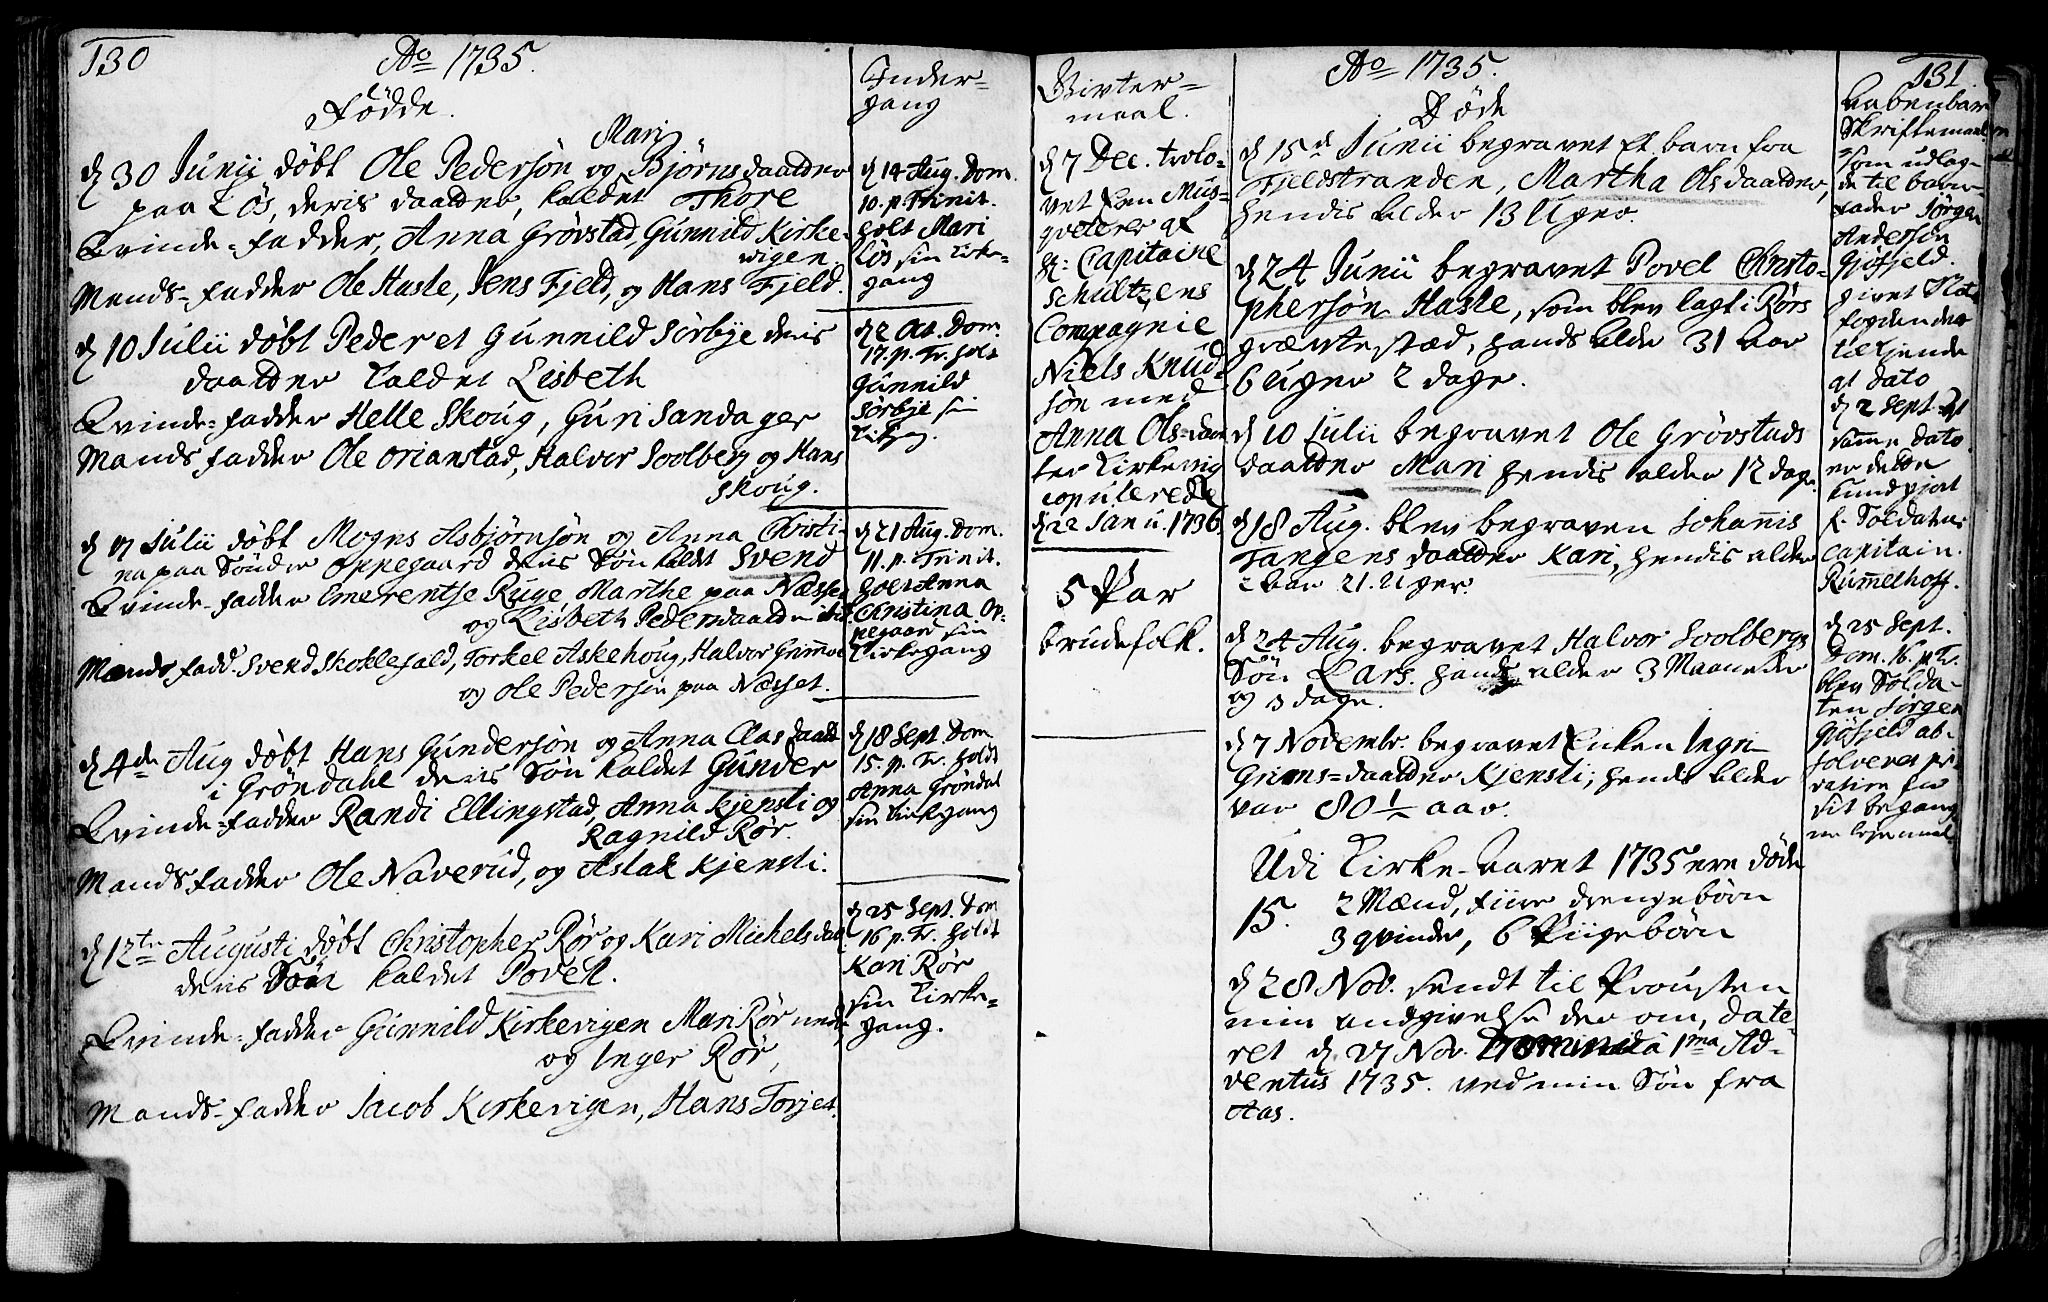 130
Ao 1735.
Fødde.
Mari
d 30 Junij døbt Ole Pedersøn og Bjørnsdaatter
paa Løs, deris daatter, kaldet Thore
Qvinde-fadder, Anna Grøvstad, Gunnild Kirke-
vigen.
Mends-fadder Ole Hasle, Jens Fjeld, og Hans Fjeld.
d 10 Julii døbt Peder et Gunnild Sørbye deris
daatter kaldet Lisbeth
Qvinde-fadder Helle Skoug, Guri Sandager
Mands fadder Ole Orianstad, Halvor Soolberg og Hans
Skoug.
d 17 Julii døbt Mogns Asbjørnsøn og Anna Christi-
na paa Søndre Oppegaard deris Søn kaldt Svend
Qvinde-fadder Emerentse Ruge Marthe paa Næsset
og Lisbeth Pedersdaatter ibid.
Mands fadd. Svend Skoklefald, Torkel Askehoug, Halvor Grimsø
og Ole Pedersøn paa Næsset.
d 4de Aug døbt Hans Gundersøn og Anna Clas daatt
i Grøndahl deris Søn kaldet Gunder
Qvinde-fadder Randi Ellingstad, Anna Kjensti og
Ragnild Rør.
Mands fadder Ole Naverud, og Aslak Kjensti.
d 12te Augusti døbt Christopher Rør og Kari Michelsdaat
deris Søn kaldet Povel.
Qvinde-fadder Gunnild Kirkevigen Mari Rør nedr,
og Inger Rør,
Mands-fadder Jacob Kirkevigen, Hans Torjer.
Inder-
gang
d 14 Aug. Dom.
10. p. Trinit.
holt Mari
Løs sin Kirke-
gang
d 2 Oct. Dom.
17. p. Tr. holt
Gunnild
Sørbye sin
Kirkeg.
d 21 Aug. Dom.
11. p. Trinit.
holt Anna
Christina Op-
pegaard sin
Kirkegang
d 18 Sept Dom
15. p. Tr. holdt
Anna Grøndal
sin Kirkgang
d 25 Sept. Dom
16 p. Tr. holdt
Kari Rør
sin Kirke-
gang.
Givter-
maal.
d 7 Dec. trolo-
vet en Mus-
qveterer af
Hr. Capitaine
Schultzens
Compagnie
Niels Knud-
søn med
Anna Ols-daat
ter Kirkevig
copulerede
d 22 Janu. 1736.
5 Par
brudefolk.
Ao 1735.
Døde
d 15d Junii begravet Et barn fra
Fjeldstranden, Martha Olsdaatter,
hendis alder 13 Uger.
d 24 Junii begravet Povel Christo-
phersøn Hasle, som blev lagt i Rørs
grævtestæd, hands alder 31 aar
6 uger 2 dage.
d 10 Julii begravet Ole Grøvstads
daatter Mari hendis alder 12 dage.
d 18 Aug. blev begraven Johannis
Tangens daatter Kari, hendis alder
2 aar 21. Uger.
d 24 Aug. begravet Halvor Soolbergs
Søn Lars. hands alder 3 Maaneder
og 3 dage.
d 7 Novembr. begravet Enken Ingri
Grims-daatter Kjensti; hends alder
var 80 ½ aar.
Udi Kirke-Aaret 1735 ere døde
15. 2 Mænd, fiire drengebørn
3 qvinder, 6 Piigebørn
d 28 Nov. sendt til Prousten
min Angivelse der om, date-
ret d 27 Nov. Dominica 1ma Ad-
ventus 1735. ved min Søn fra
Aas.
131.
Aabenbar
Skriftemaal
som udlag-
de til barne
fader Jørgen
Andersøn
Gjøfjeld.
givet
fogden det
tilkjende
at dato
d 2 Sept.
samme dato
er dette
kundgjort
f. Soldatens
Capitain.
Rummelhoff.
d 25 Sept.
Dom. 16. p Tr.
blev Solda-
ten Jørgen
Gjøfjeld ab-
solveret pri-
vatim for
sit begang
ne leyermaal.